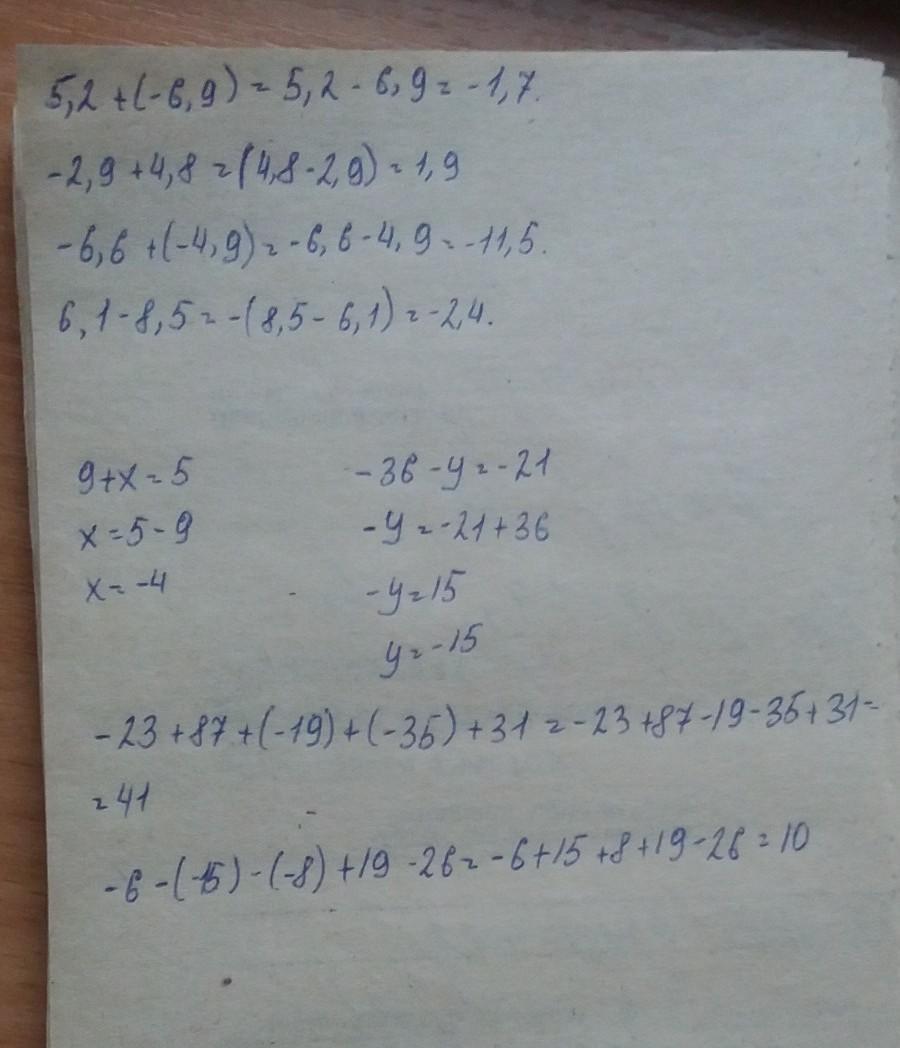 5,2 + (-6,9) = 5,2 - 6,9 = -1,7.
-2,9 + 4,8 = (4,8 - 2,9) = 1,9
-6,6 + (-4,9) = -6,6 - 4,9 = -11,5.
6,1 - 8,5 = -(8,5 - 6,1) = -2,4.
9 + x = 5
x = 5 - 9
x = -4
-36 - y = -21
-y = -21 + 36
-y = 15
y = -15
-23 + 87 + (-19) + (-35) + 31 = -23 + 87 - 19 - 35 + 31 =
= 41
-6 - (-15) - (-8) + 19 - 26 = -6 + 15 + 8 + 19 - 26 = 10